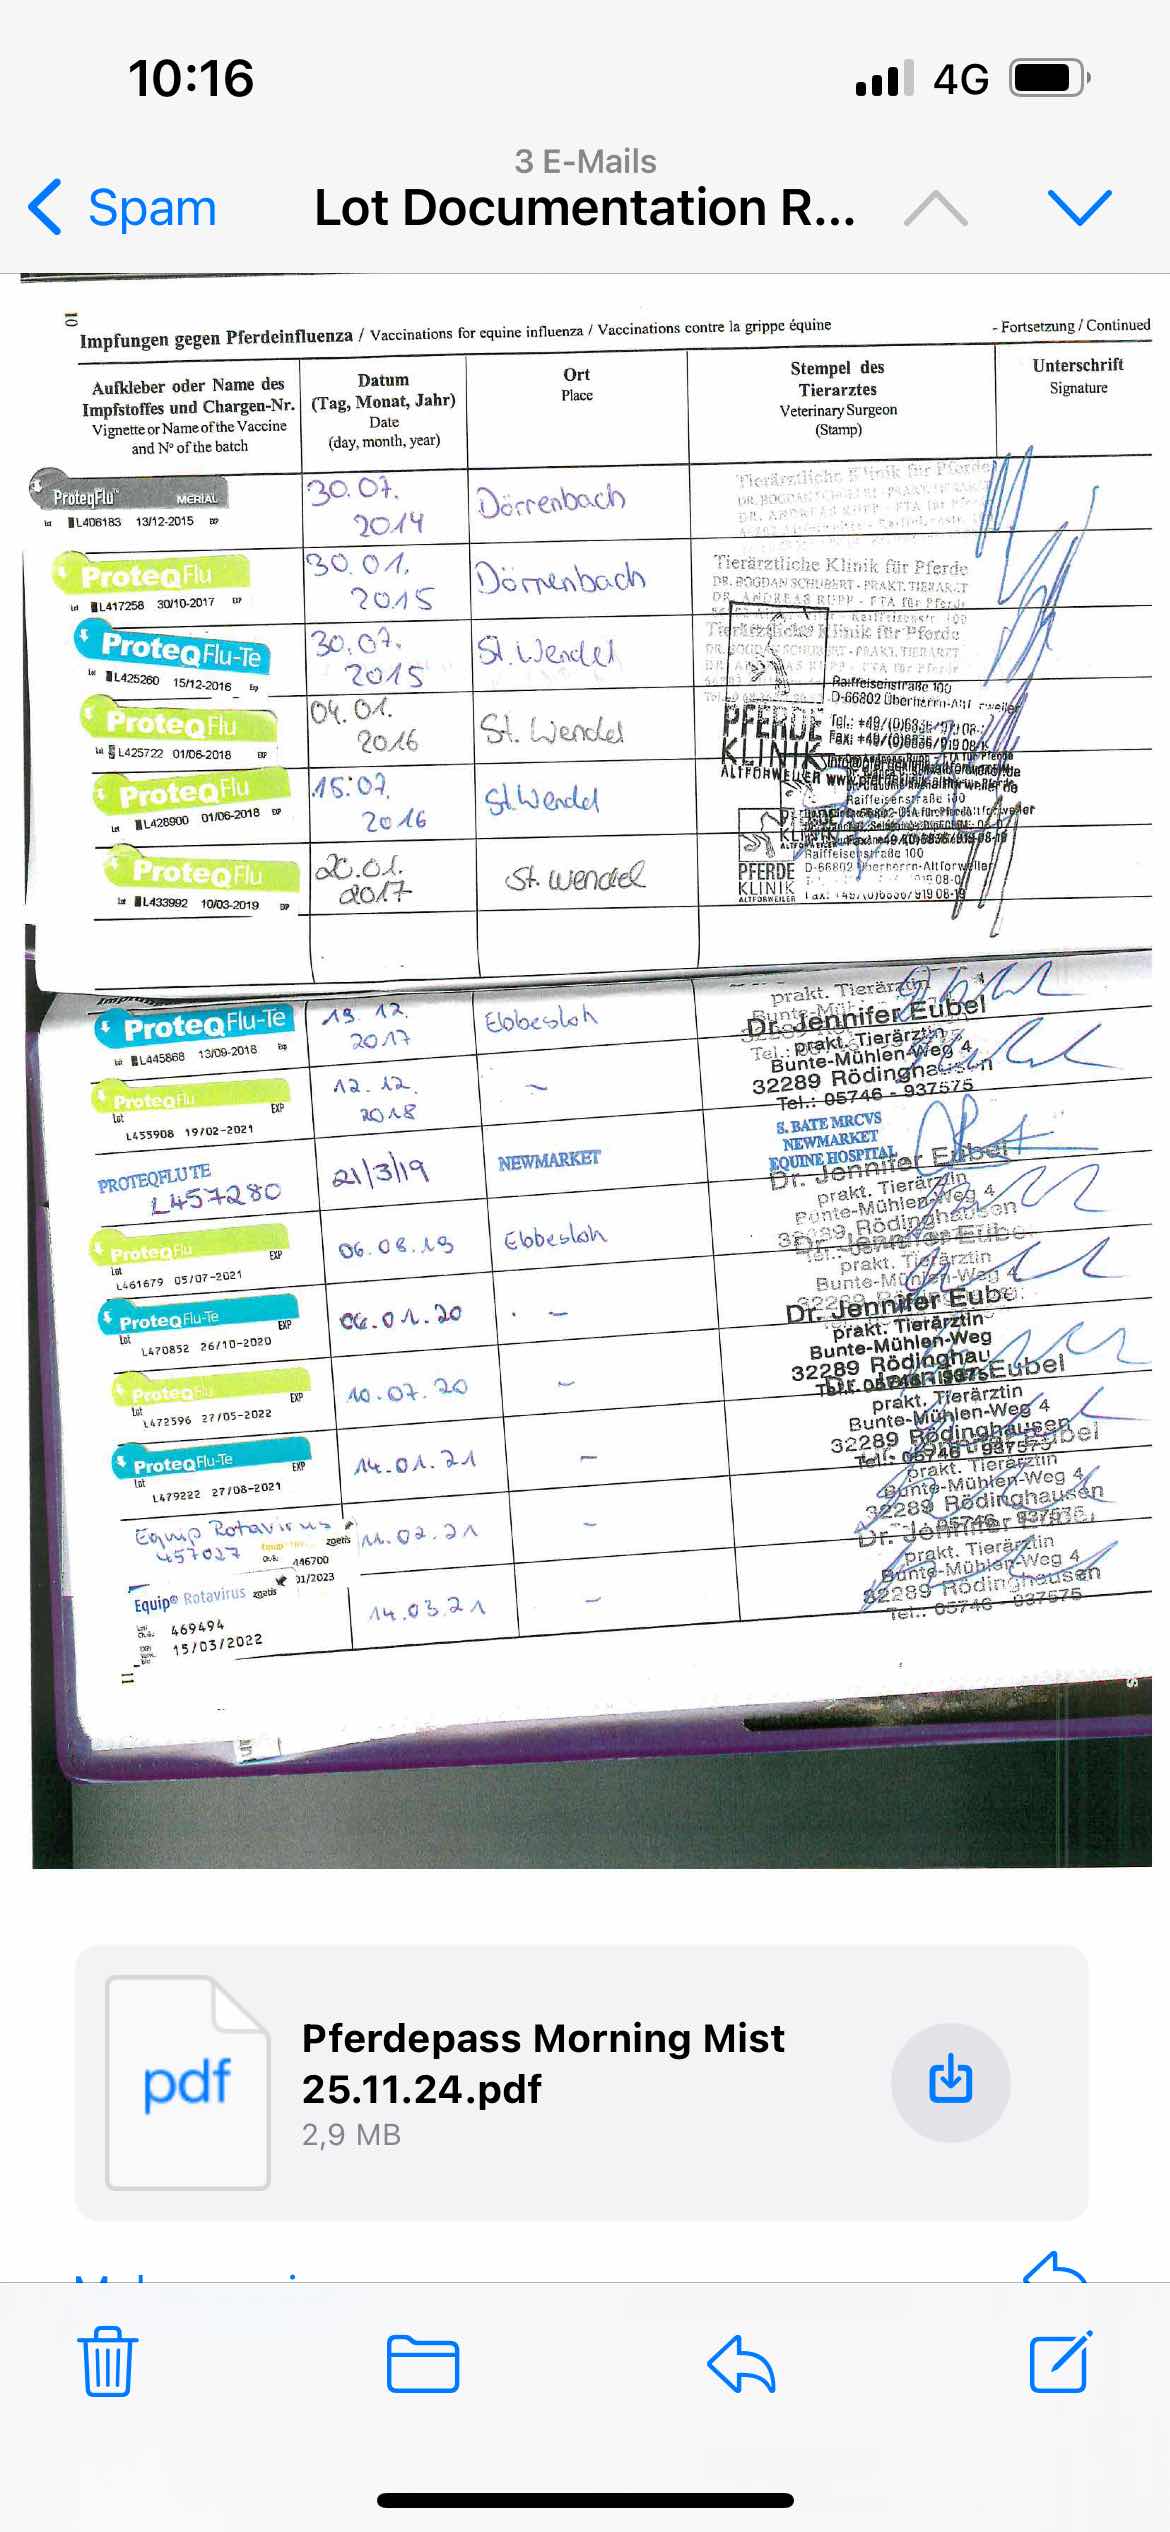 10:16
4G
3 E-Mails
Spam
Lot Documentation R...
10
Impfungen gegen Pferdeinfluenza / Vaccinations for equine influenza / Vaccinations contre la grippe équine
- Fortsetzung / Continued
Aufkleber oder Name des
Impfstoffes und Chargen-Nr.
Vignette or Name of the Vaccine
and N° of the batch
Datum
(Tag, Monat, Jahr)
Date
(day, month, year)
Ort
Place
Stempel des
Tierarztes
Veterinary Surgeon
(Stamp)
Unterschrift
Signature
ProteqFlu™ MERIAL
L406183 13/12-2015
30.07.
2014
Dörrenbach
Tierärztliche Klinik für Pferde
ProteqFlu
L417258 30/10-2017 EXP
30.01.
2015
Dörrenbach
Tierärztliche Klinik für Pferde
DR. BOGDAN SCHUBERT - PRAKT. TIERARZT
DR. ANDREAS RUPP - FTA für Pferde
ProteqFlu-Te
L425260 15/12-2016 Exp
30.07.
2015
St. Wendel
Tierärztliche Klinik für Pferde
Raiffeisenstraße 100
D-66802 Überherrn-Altforweiler
ProteqFlu
L425722 01/06-2018 EXP
04.01.
2016
St. Wendel
PFERDE
KLINIK
ALTFORWEILER
ProteqFlu
L428900 01/06-2018 EXP
15.07.
2016
St. Wendel
Raiffeisenstraße 100
ProteqFlu
L433992 10/03-2019 EXP
20.01.
2017
St. Wendel
PFERDE
KLINIK
ALTFORWEILER
Raiffeisenstraße 100
D-66802 Überherrn-Altforweiler
Fax: +49/(0)6836/919 08-19
ProteqFlu-Te
L445868 13/09-2018 Exp
19.12.
2017
Ebbesloh
prakt. Tierärztin
Dr. Jennifer Eubel
prakt. Tierärztin
Bunte-Mühlen-Weg 4
32289 Rödinghausen
Tel.: 05746 - 937575
ProteqFlu
Lot EXP
L455908 19/02-2021
12.12.
2018
–
PROTEQFLU TE
L457280
21/3/19
NEWMARKET
S. BATE MRCVS
NEWMARKET
EQUINE HOSPITAL
Dr. Jennifer Eubel
prakt. Tierärztin
Bunte-Mühlen-Weg 4
32289 Rödinghausen
ProteqFlu
Lot EXP
L461679 05/07-2021
06.08.19
Ebbesloh
prakt. Tierärztin
Bunte-Mühlen-Weg 4
ProteqFlu-Te
Lot EXP
L470852 26/10-2020
06.01.20
–
Dr. Jennifer Eube
prakt. Tierärztin
Bunte-Mühlen-Weg
32289 Rödinghau
ProteqFlu
Lot EXP
L472596 27/05-2022
10.07.20
–
Eubel
prakt. Tierärztin
Bunte-Mühlen-Weg 4
32289 Rödinghausen
Tel.: 05746 - 937575
ProteqFlu-Te
Lot EXP
L479222 27/08-2021
14.01.21
–
prakt. Tierärztin
Bunte-Mühlen-Weg 4
32289 Rödinghausen
Equip Rotavirus
457027
zoetis
446700
01/2023
11.02.21
–
Dr. Jennifer
prakt. Tierärztin
Bunte-Mühlen-Weg 4
32289 Rödinghausen
Tel.: 05746 - 937575
Equip® Rotavirus zoetis
469494
15/03/2022
14.03.21
–
11
pdf
Pferdepass Morning Mist
25.11.24.pdf
2,9 MB